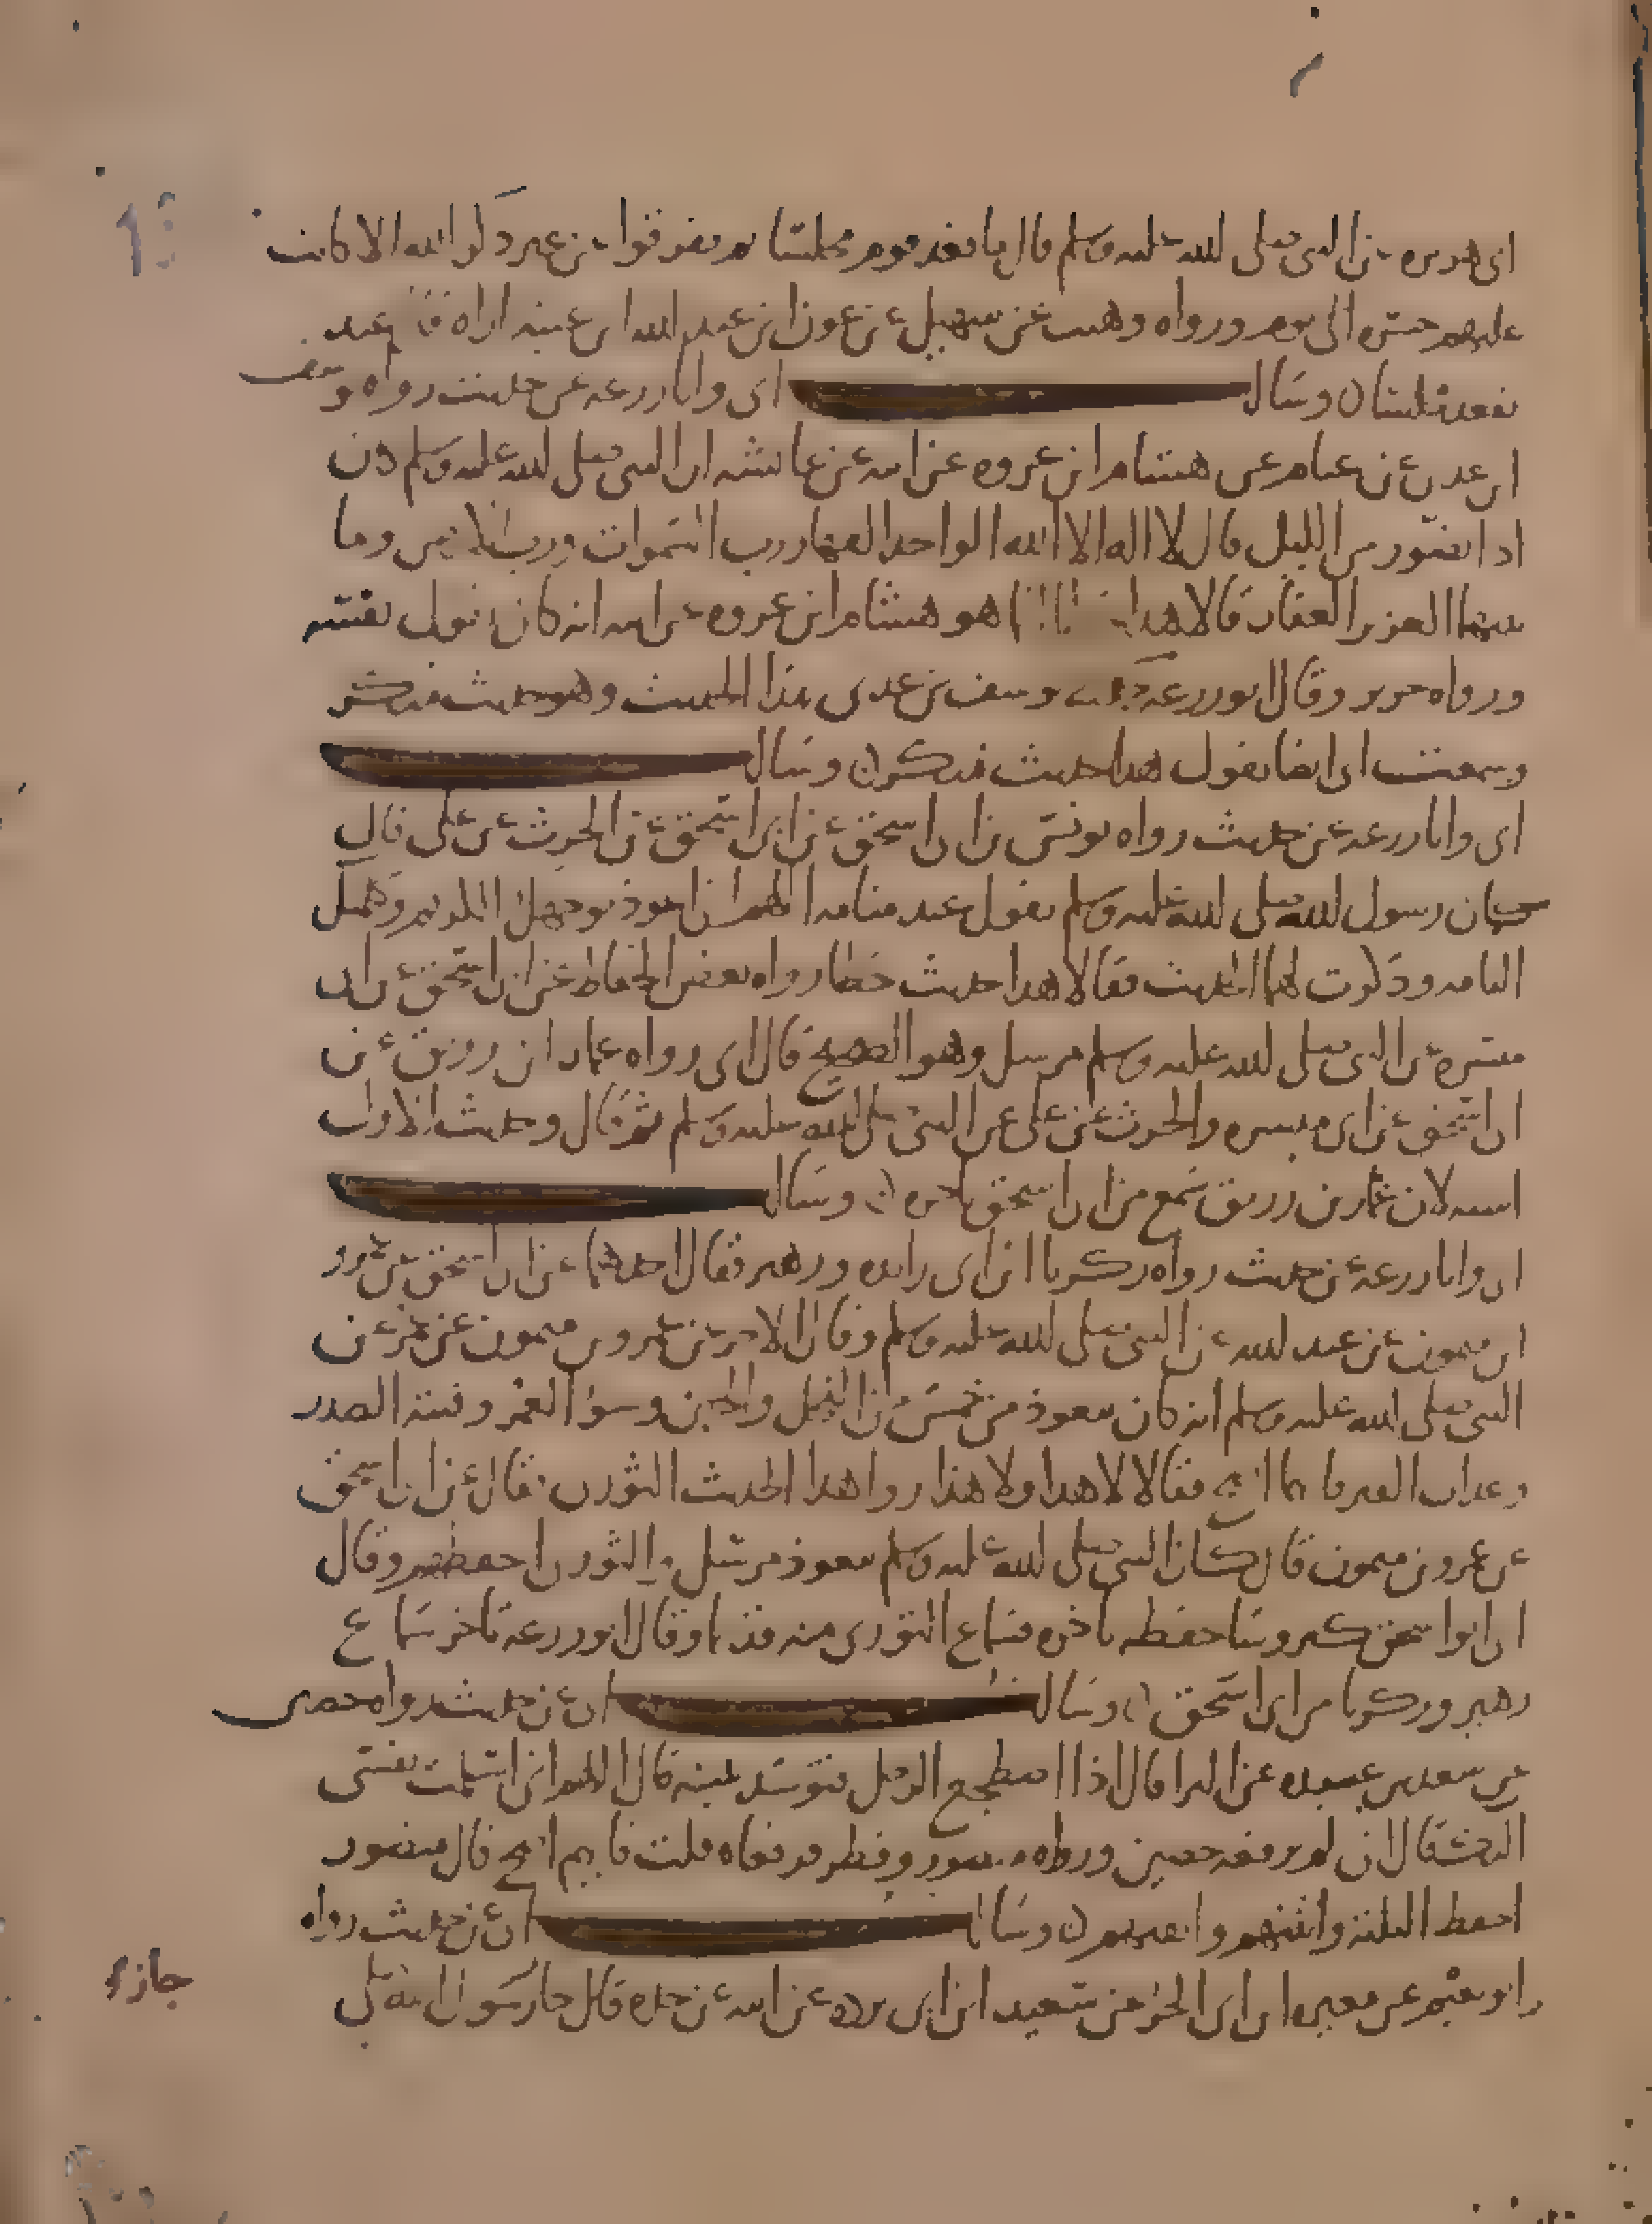 ابي هريره عن النبي صلى الله عليه وسلم قال ما قعد قوم مجلسا ثم تفرقوا عن غير ذكر الله الا كانت
عليهم حسره الى يوم ورواه وهيب عن سهيل عن عون ابن عبد الله ابن عتبه
وسال ابي وابا زرعه عن حديث رواه يوسف
ابن عدي عن عثام عن هشام ابن عروه عن ابيه عن عائشه ان النبي صلى الله عليه وسلم كان
اذا تضور من الليل قال لا اله الا الله الواحد القهار رب السموات ورب الارض وما
بينهما العزيز الغفار قالا هذا هو هشام ابن عروه عن ابيه انه كان يقول نفسه
ورواه جرير وقال ابو زرعه يوسف بن عدي هذا الحديث وهو حديث منكر
وسمعت ابي ايضا يقول هذا حديث منكر وسال
ابي وابا زرعه عن حديث رواه يونس بن ابي اسحق عن ابي اسحق عن الحرث عن علي قال
كان رسول الله صلى الله عليه وسلم يقول عند منامه اللهم اني اعوذ بوجهك الكريم وكلماتك
التامه وذكرت لهما الحديث فقالا هذا حديث خطا رواه بعض الحفاظ عن ابي اسحق عن ابي
ميسره عن النبي صلى الله عليه وسلم مرسل وهو الصحيح قال ابي رواه عمار ابن رزيق عن
ابي اسحق عن ابي ميسره والحرث عن علي عن النبي صلى الله عليه وسلم ثم قال وحديث الاول
اشبه لان عمار بن رزيق سمع من ابي اسحق باخره وسال
ابي وابا زرعه عن حديث رواه زكريا ابن ابي زايده وزهير فقال احدهما عن ابي اسحق عن عمرو
ابن ميمون عن عبد الله عن النبي صلى الله عليه وسلم وقال الاخر عن عمرو بن ميمون عن عمر عن
النبي صلى الله عليه وسلم انه كان يتعوذ من خمس من البخل والجبن وسؤ العمر وفتنة الصدر
وعذاب القبر فايهما اصح فقالا لا هذا ولا هذا روا هذا الحديث الثوري فقال عن ابي اسحق
عن عمرو بن ميمون قال كان النبي صلى الله عليه وسلم يتعوذ مرسل والثوري احفظهم وقال
ابي ابو اسحق كبر وسا حفظه باخره فسماع الثوري منه قديما وقال ابو زرعه تاخر سماع
زهير وزكريا من ابي اسحق وسال ابي عن حديث رواه حصين
عن سعد بن عبيده عن البرا قال اذا اضطجع الرجل فتوسد يمينه قال اللهم اني اسلمت نفسي
اليك فقال ابي لم يرفعه حصين ورواه منصور وفطر فرفعاه قلت فايهم اصح قال منصور
احفظ الثلثة واتقنهم وسال ابي عن حديث رواه
ابو نعيم عن مغيره ابن ابي الحر عن سعيد ابن ابي برده عن ابيه عن جده قال جا رسول الله صلى
جازء